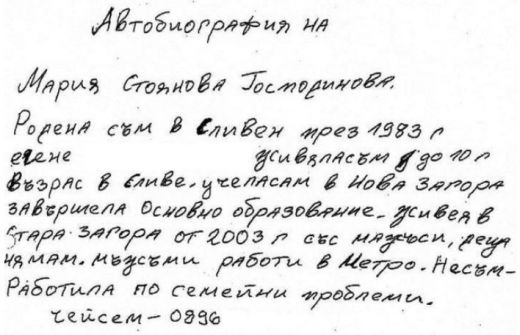 Автобиография на
Мария Стоянова Господинова.
Родена съм в Сливен през 1983 г
егене живяласъм до 10 г
възрас в Сливе. учеласам в Нова Загора
завършела Основно образование. живея в
Стара Загора от 2003 г със мажъси, деца
нямам. мъжъми работи в Метро. Несъм-
Работила по семейни проблеми.
чейсем - 0896